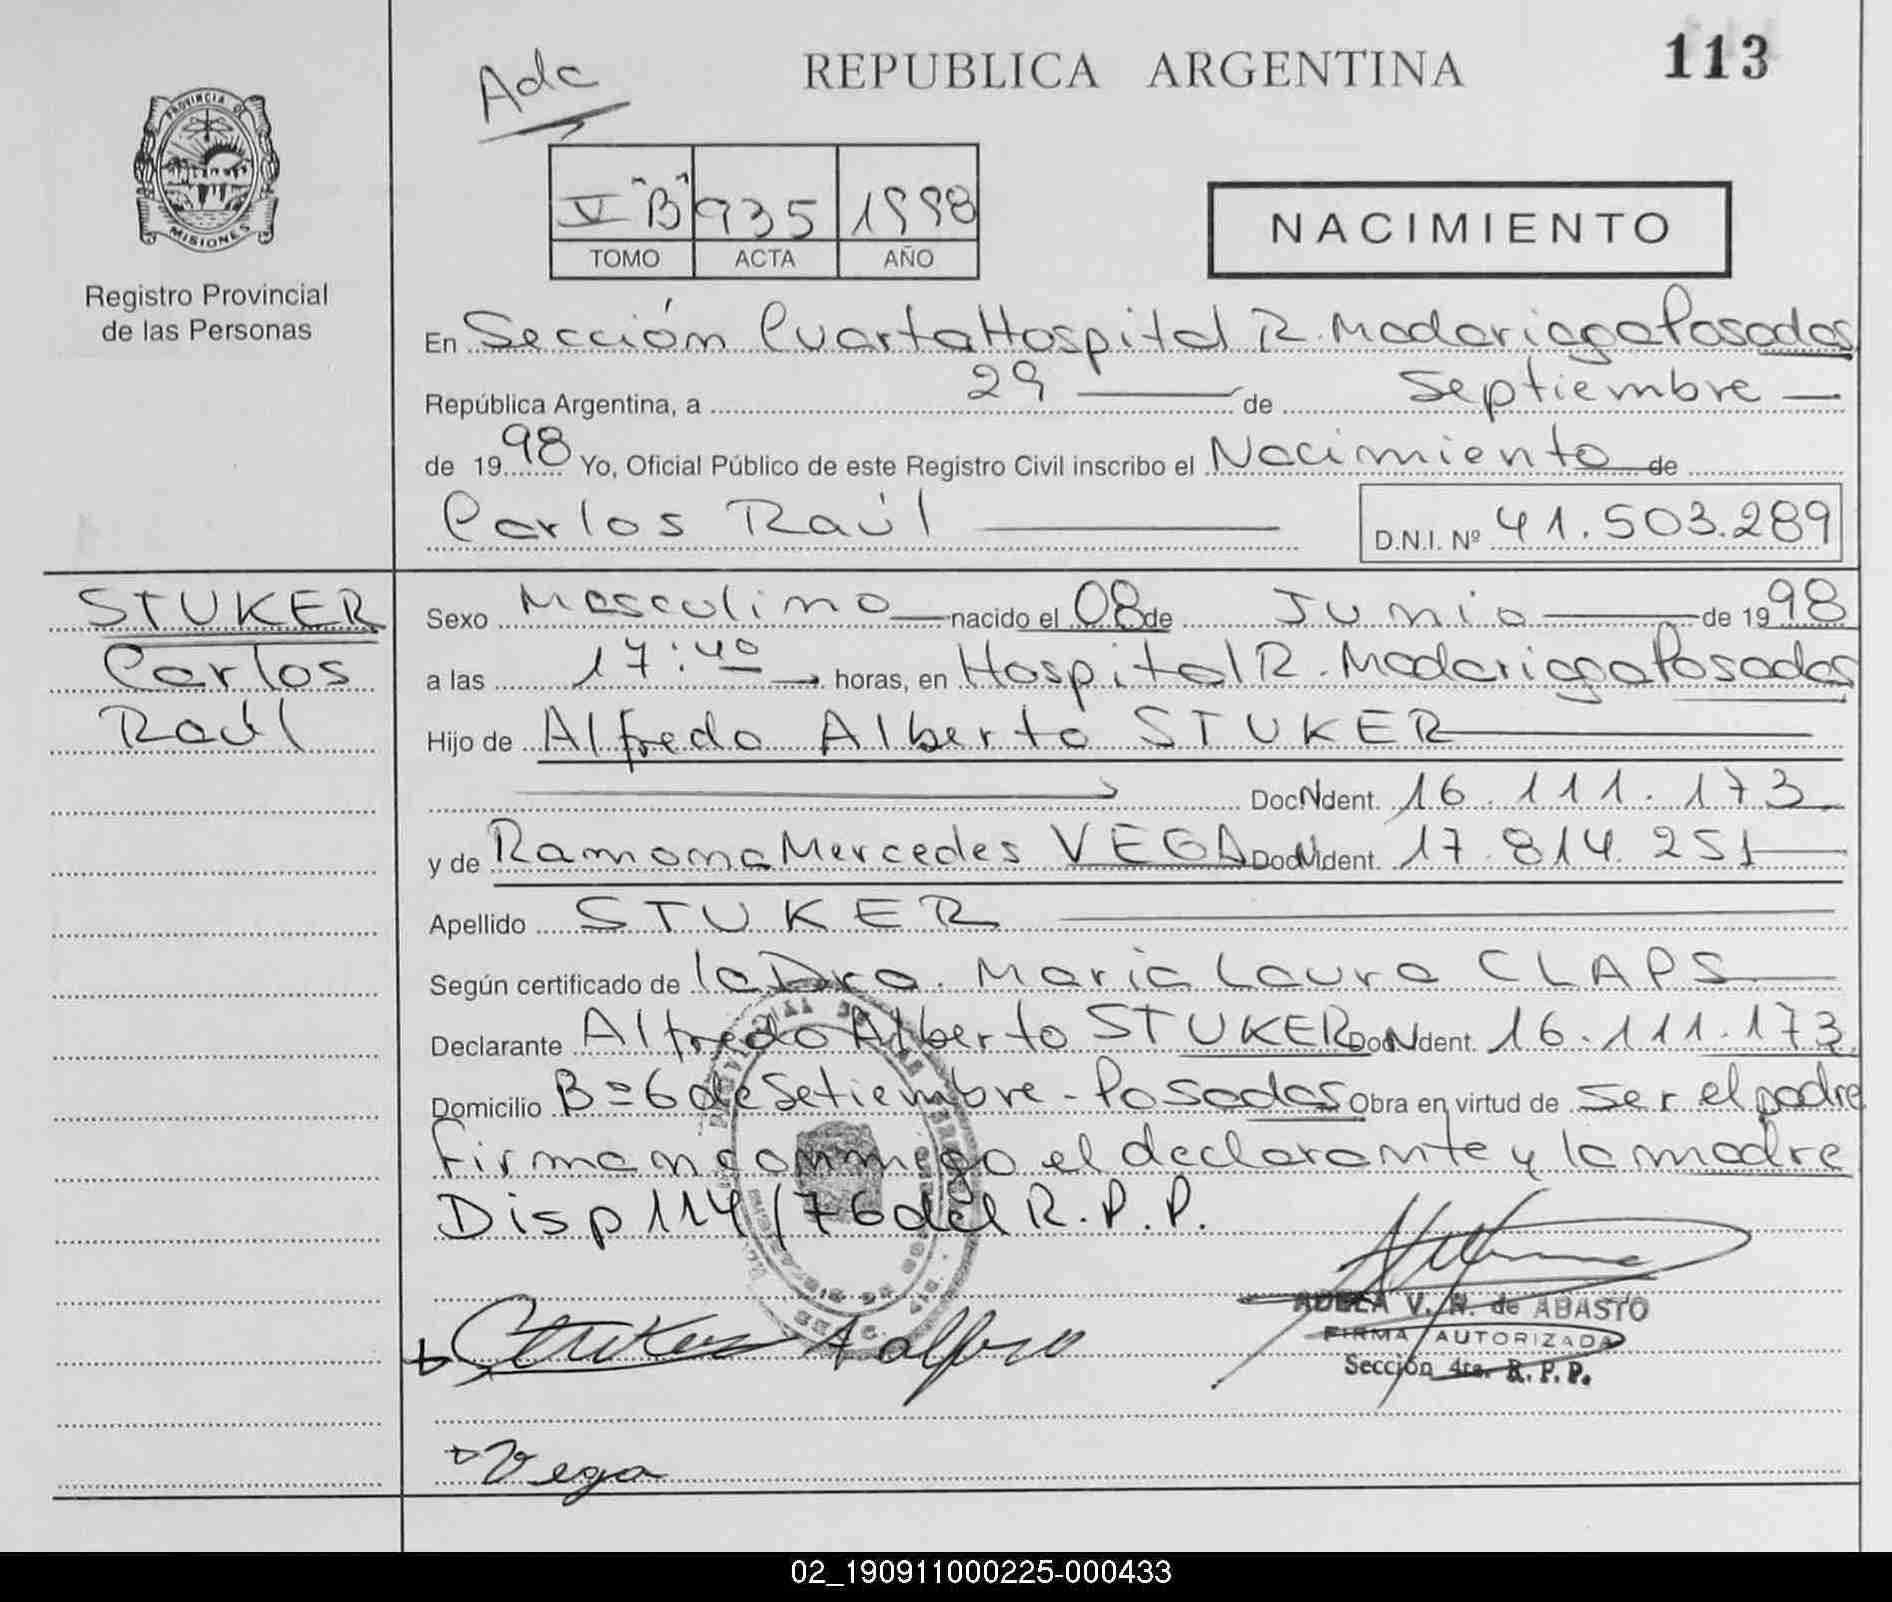 Ade
REPUBLICA ARGENTINA
113
PROVINCIA DE
MISIONES
Registro Provincial
de las Personas
V "B" 935 1998
TOMO ACTA AÑO
NACIMIENTO
En Sección Cuarta Hospital R. Madariaga Posadas
República Argentina, a 29 de Septiembre
de 1998 Yo, Oficial Público de este Registro Civil inscribo el Nacimiento de
Carlos Raúl
D.N.I. Nº 41.503.289
STUKER
Carlos
Raúl
Sexo Masculino nacido el 08 de Junio de 1998
a las 17:40 horas, en Hospital R. Madariaga Posadas
Hijo de Alfredo Alberto STUKER
DocNdent. 16.111.173
y de Ramona Mercedes VEGA DocNdent. 17.814.251
Apellido STUKER
Según certificado de la Dra. Maria Laura CLAPS
Declarante Alfredo Alberto STUKER DocNdent. 16.111.173
Domicilio Bº 6 de Setiembre - Posadas Obra en virtud de ser el padre
firman conmigo el declarante y la madre
Disp 114/76 del R.P.P.
ADELA V. N. de ABASTO
FIRMA AUTORIZADA
Sección 4ta. R. P. P.
Stuker
Vega
02_190911000225-000433